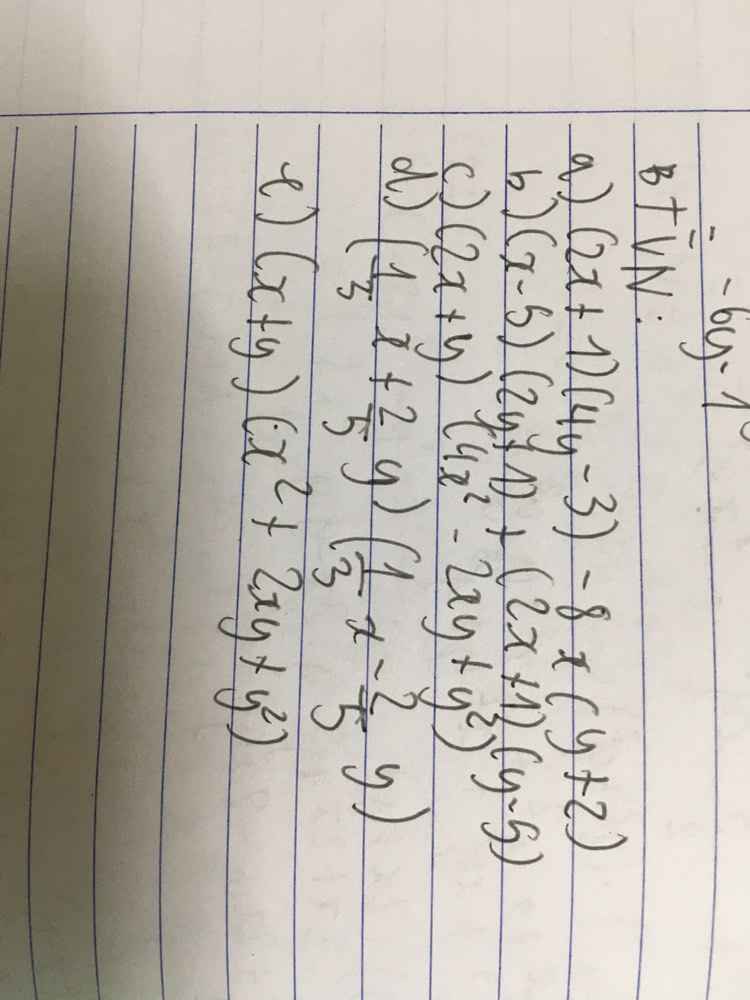 -6y-1
=
BTVN:
a) (2x+1)(4y-3) -8x(y+2)
b) (x-5)(2y+1)+(2x+1)(y-5)
c) (2x+y)(4x²-2xy+y²)
d) (1/3 x + 2/5 y)(1/3 x - 2/5 y)
e) (x+y)(x²+2xy+y²)